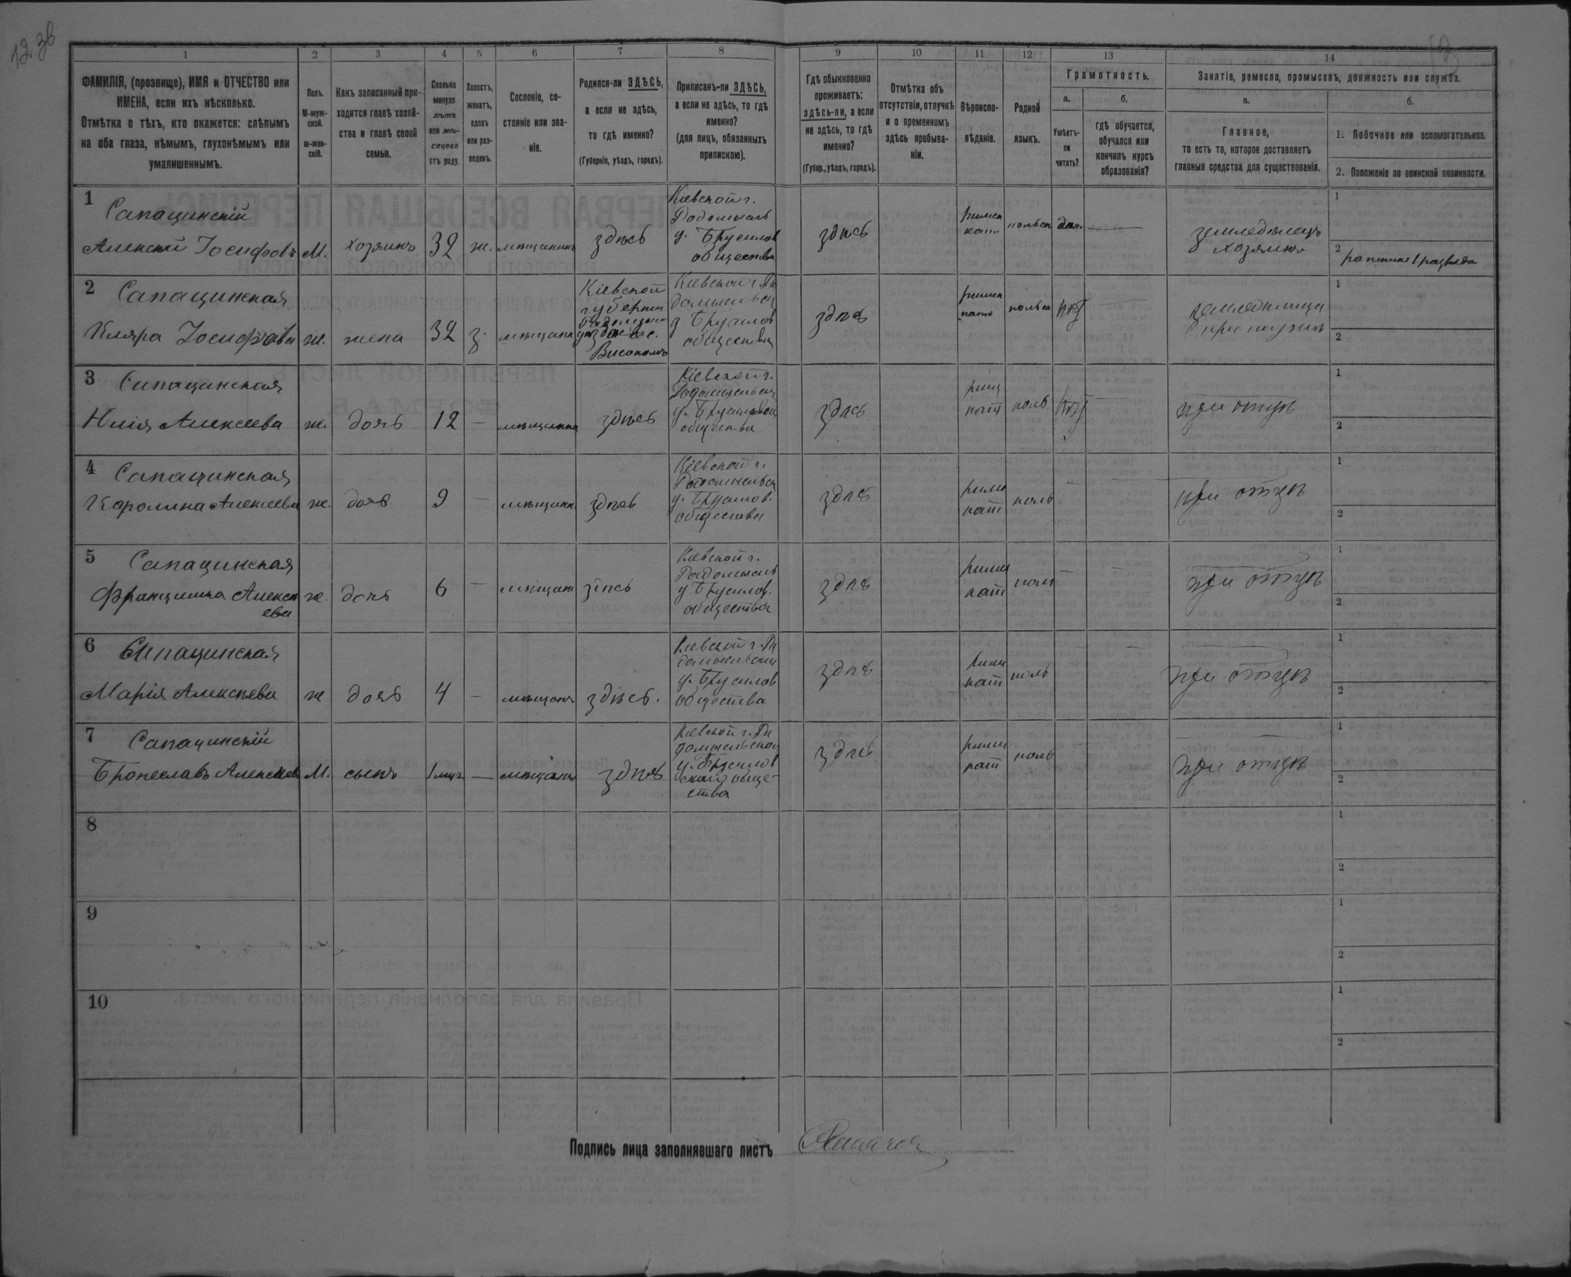 1 2 3 4 5 6 7 8 9 10 11 12 13 14
ФАМИЛІЯ, (прозвище), ИМЯ и ОТЧЕСТВО или
ИМЕНА, если ихъ нѣсколько.
Отмѣтка о тѣхъ, кто окажется: слѣпымъ
на оба глаза, нѣмымъ, глухонѣмымъ или
умалишеннымъ.
Полъ.
М-муж-
ской.
ж-жен-
скій.
Какъ записанный при-
ходится главѣ хозяй-
ства и главѣ своей
семьи.
Сколько
минуло
лѣтъ
или мѣ-
сяцевъ
отъ роду.
Холостъ,
женатъ,
вдовъ
или раз-
веденъ.
Сословіе, со-
стояніе или зва-
ніе.
Родился-ли ЗДѢСЬ,
а если не здѣсь,
то гдѣ именно?
(Губернія, уѣздъ, городъ).
Приписанъ-ли ЗДѢСЬ,
а если не здѣсь, то гдѣ
именно?
(для лицъ, обязанныхъ
припискою).
Гдѣ обыкновенно
проживаетъ:
здѣсь-ли, а если
не здѣсь, то гдѣ
именно?
(Губер., уѣздъ, городъ).
Отмѣтка объ
отсутствіи, отлучкѣ
и о временномъ
здѣсь пребыва-
ніи.
Вѣроиспо-
вѣданіе.
Родной
языкъ.
Грамотность.
а.
Умѣетъ-
ли
читать?
б.
гдѣ обучается,
обучался или
кончилъ курсъ
образованія?
Занятіе, ремесло, промыселъ, должность или служба.
а.
Главное,
то есть то, которое доставляетъ
главныя средства для существованія.
б.
1. Побочное или вспомогательное.
2. Положеніе по воинской повинности.
1 Сапацинскій
Алексѣй Іосифовъ М. хозяинъ 32 ж. мѣщанинъ здѣсь
Кіевской г.
Радомысль
у. Брусилов
общества
здѣсь
римск
кат
польск
землѣделецъ
хозяинъ
1
2
2 Сапацинская
Кляра Іосифова ж. жена 32 з. мѣщанка
Кіевской
губерніи
Кіевской г. Ра
домысльск
у Брусилов
общества
здѣсь
римск
кат
польск
нѣт
при мужѣ
1
2
3 Сапацинская
Юлія Алексѣева ж. дочь 12 — мѣщанка здѣсь
Кіевской г.
Радомысльск
у. Брусилов
общества
здѣсь
римск
кат
поль
нѣт
при отцѣ
1
2
4 Сапацинская
Каролина Алексѣева ж. дочь 9 — мѣщанк здѣсь
Кіевской г.
Радомысльск
у. Брусилов.
общества
здѣсь
римск
кат
поль
при отцѣ
1
2
5 Сапацинская
Францишка Алексѣ
ева
ж. дочь 6 — мѣщанк здѣсь
Кіевской г.
Радомысль
у Брусилов.
общества
здѣсь
римск
кат
поль
при отцѣ
1
2
6 Сапацинская
Марія Алексѣева ж дочь 4 — мѣщанк здѣсь.
Кіевской г. Ра
домысльск
у. Брусилов
общества
здѣсь
римск
кат
поль
при отцѣ
2
7 Сапацинскій
Брониславъ Алексѣев М. сынъ 1 мца — мѣщанин здѣсь
Кіевской г. Ра
домысльской
у. Брусилов
скаго обще-
ства
здѣсь
римск
кат
поль
при отцѣ
1
2
8
1
2
9
1
2
10
1
2
Подпись лица заполнявшаго листъ